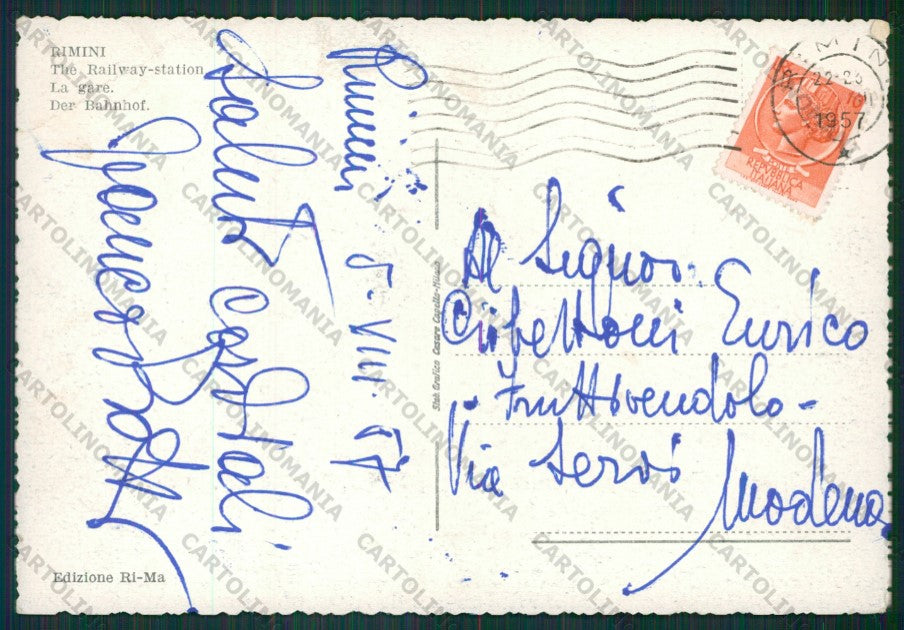 RIMINI
The Railway-station
La gare.
Der Bahnhof.
Rimini 5. VIII. 57
Saluti cordiali
RIMINI
22-23
1957
REPVBBLICA
ITALIANA
Stab. Grafico Cesare Capello-Milano
Al Signor.
Enrico
Fruttivendolo-
Via Servi
Modena
Edizione Ri-Ma
CARTOLINOMANIA